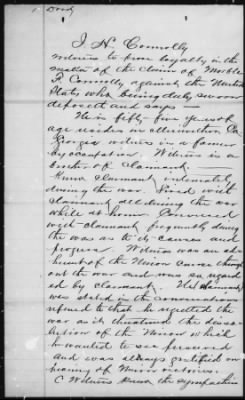 J. H. Connolly
witness to prove loyalty in the
matter of the claim of Noble
F. Connolly against the United
States who being duly sworn
deposeth and says —
He is fifty five years of
age resides in Co
Georgia witness is a farmer
by occupation Witness is a
brother of claimant —
Knew claimant intimately
during the war. Lived with
claimant all during the war
while at home Conversed
with claimant frequently during
the war as to its causes and
progress Witness was an
of the Union Cause through
out the war and was so regard
ed by claimant
was stated in the conversations
refered to that he regretted the
war as it threatened the disso
lution of the Union which
he wanted to see preserved
and was always gratified on
hearing of Union victories.
Witness knew the sympathies